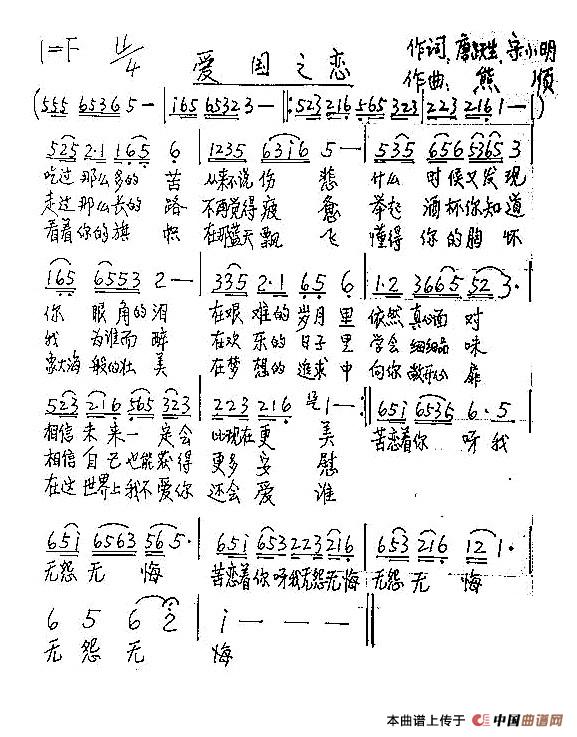 1=F 4/4
爱国之恋
作词 唐跃生 宋小明
作曲: 熊 顺
(555 6536 5 — | i65 6532 3 — |: 523 216 565 323 | 223 216 1 — |)
525 2·1 165 6 | 1235 63i6 5 — | 535 656 5365 3
吃过那么多的苦 从来不说伤悲 什么时候又发现
走过那么长的路 不再觉得疲惫 举起酒杯你知道
看着你的旗帜 在那蓝天飘飞 懂得你的胸怀
165 6553 2 — | 335 2·1 65 6 | 1·2 3665 52 3·
你眼角的泪 在艰难的岁月里 依然真心面对
我为谁而醉 在欢乐的日子里 学会细细品味
象大海般的壮美 在梦想的追求中 向你敞开心扉
523 216 565 323 | 223 216 1 — :| 65i 6535 6·5
相信未来一定会 比现在更美 苦恋着你呀我
相信自己也能获得 更多安慰
在这世界上我不爱你 还会爱谁 是
65i 6563 56 5· | 65i 653 223 216 | 653 216 12 1·
无怨无悔 苦恋着你呀我无怨无悔 无怨无悔
6 5 6 2 | i — — — ||
无怨无 悔
本曲谱上传于 中国曲谱网